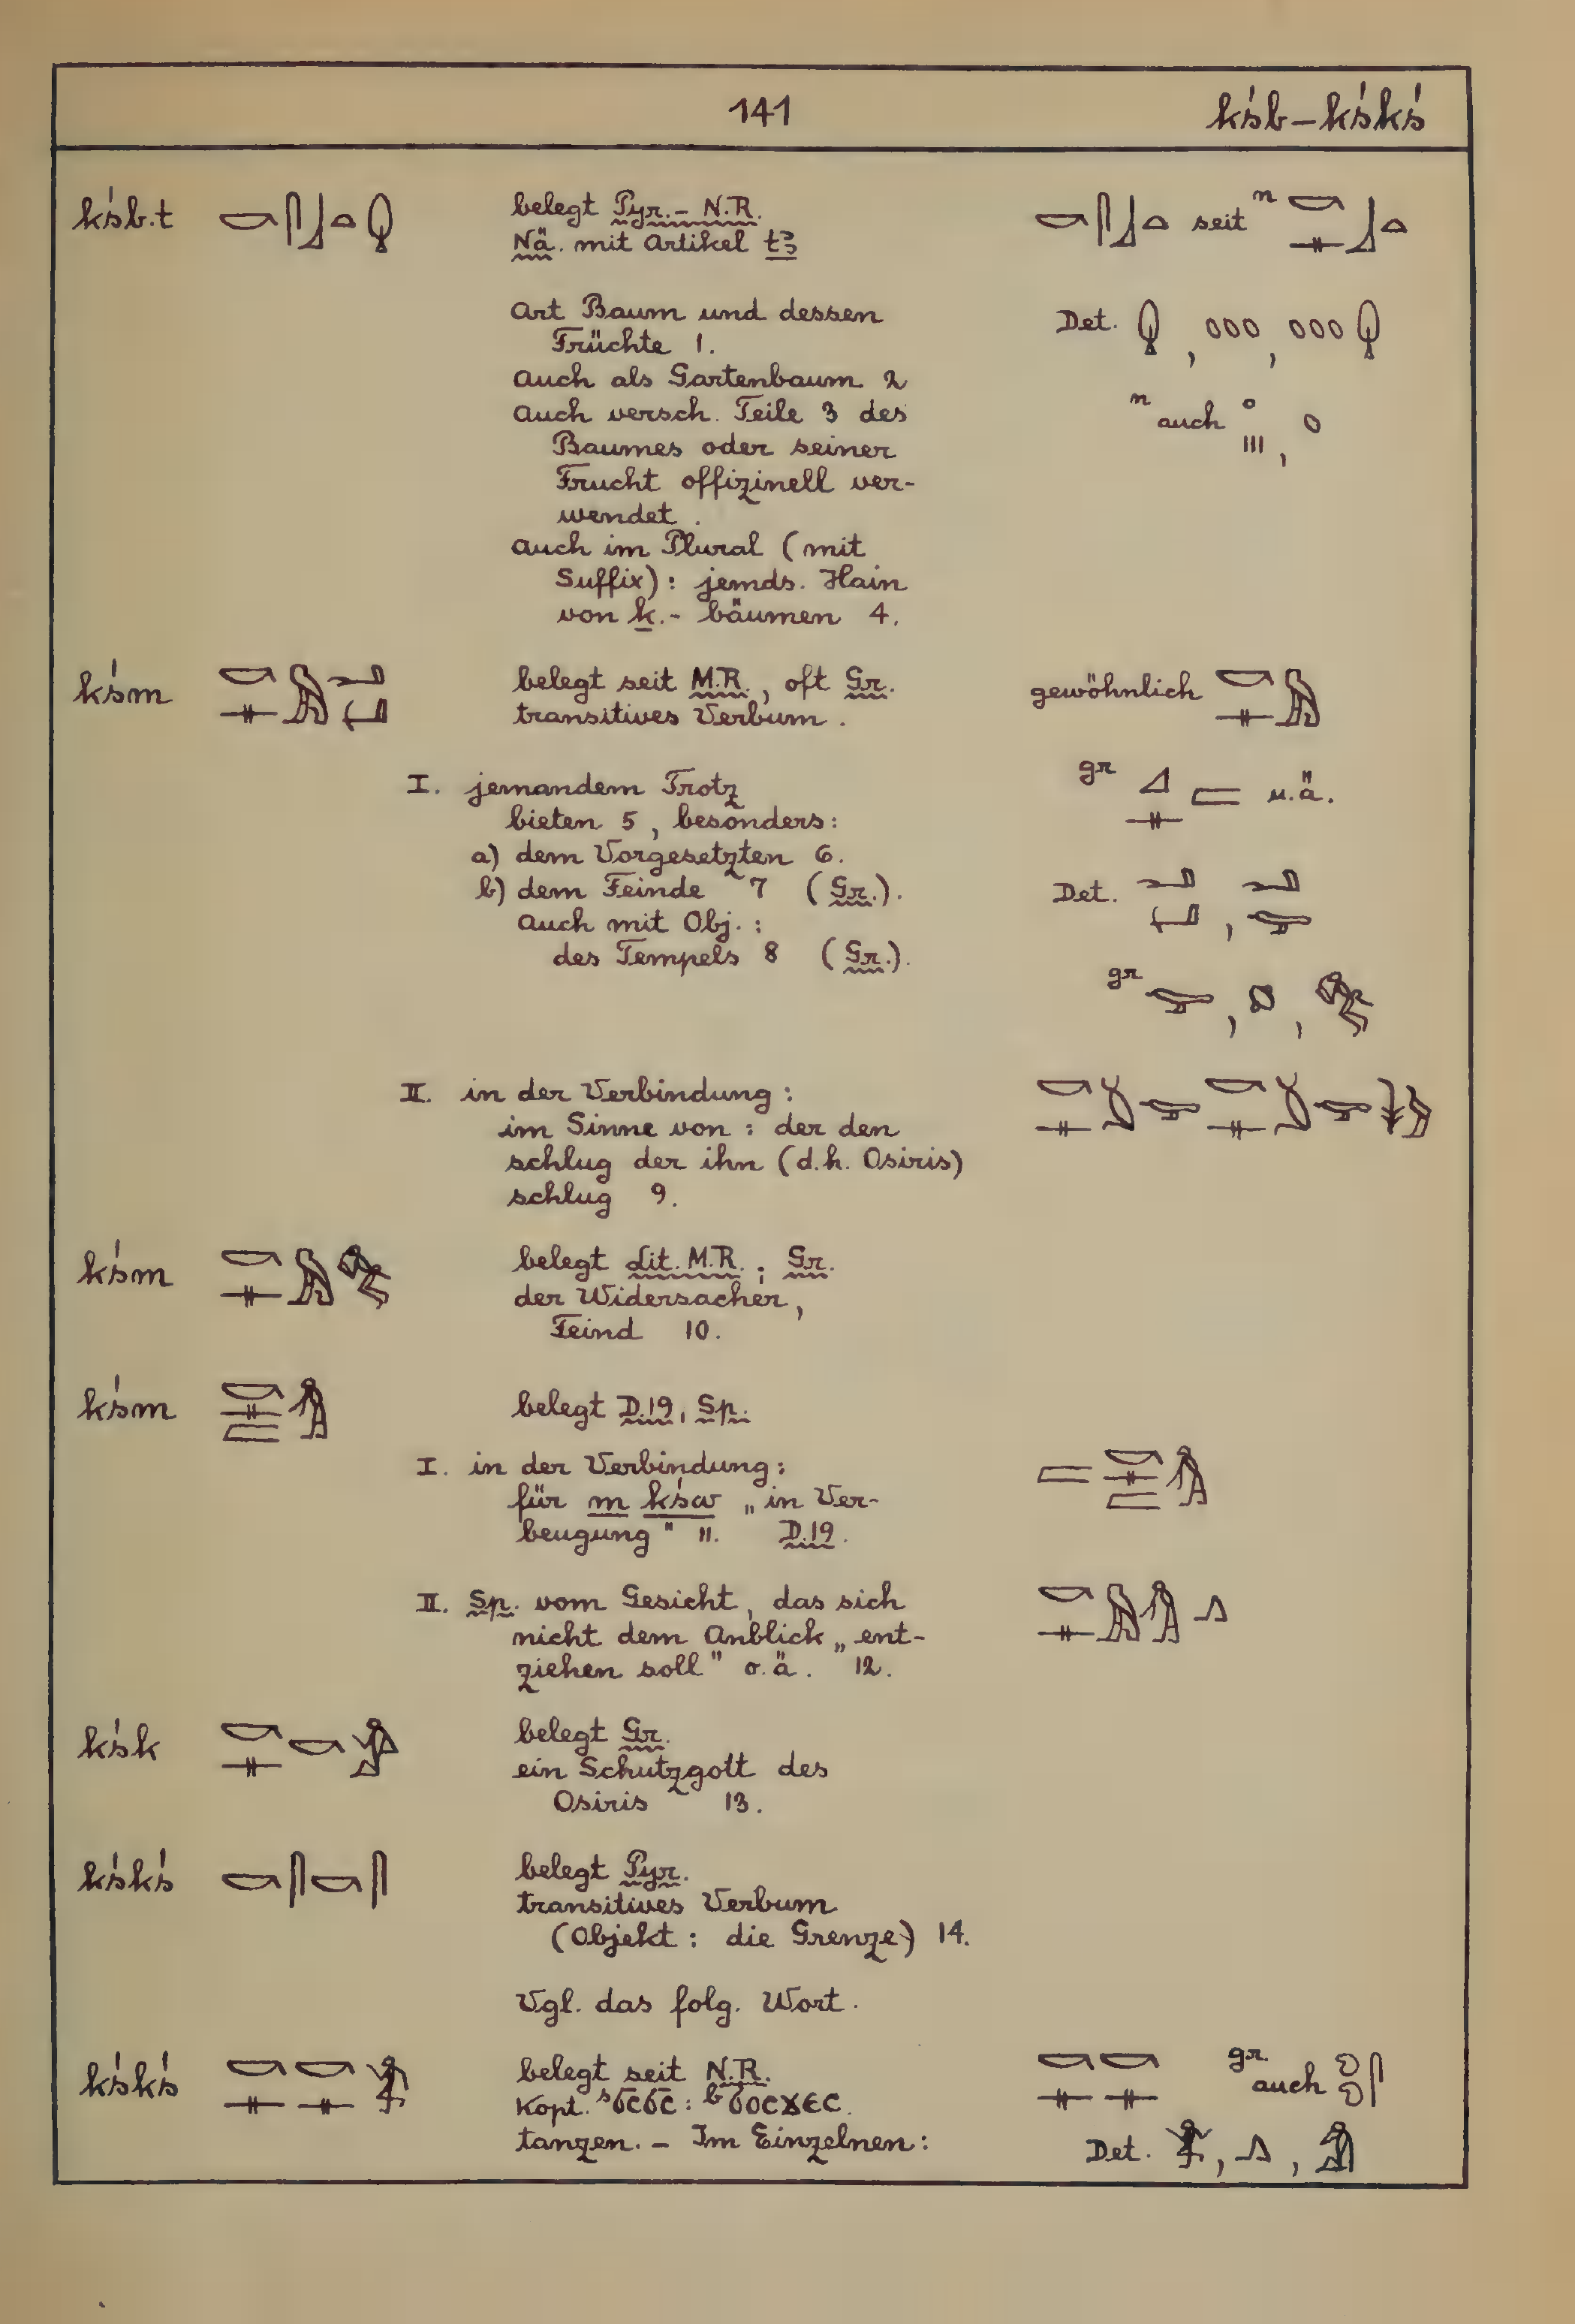 141 kśb – kśkś
kśb.t 𓎡𓋴𓃀𓏏𓆭 belegt Pyr. – N.R. 𓎡𓋴𓃀𓏏 seit n 𓎡𓊃𓃀𓏏
Nä. mit Artikel tꜣ
Art Baum und dessen Det.
Früchte 1.
auch als Gartenbaum 2
auch versch. Teile 3 des n auch
Baumes oder seiner
Frucht offizinell ver-
wendet.
auch im Plural (mit
Suffix): jemds. Hain
von k.- bäumen 4.
kśm belegt seit M.R., oft Gr. gewöhnlich
transitives Verbum.
I. jemandem Trotz gr u.ä.
bieten 5, besonders:
a) dem Vorgesetzten 6.
b) dem Feinde 7 (Gr.). Det.
auch mit Obj.:
des Tempels 8 (Gr.).
gr
II. in der Verbindung:
im Sinne von: der den
schlug der ihn (d.h. Osiris)
schlug 9.
kśm belegt Lit. M.R.; Gr.
der Widersacher,
Feind 10.
kśm belegt D.19, Sp.
I. in der Verbindung:
für m kśw „in Ver-
beugung" 11. D.19.
II. Sp. vom Gesicht, das sich
nicht dem Anblick „ent-
ziehen soll" o.ä. 12.
kśk belegt Gr.
ein Schutzgott des
Osiris 13.
kśkś 𓎡𓋴𓎡𓋴 belegt Pyr.
transitives Verbum
(Objekt: die Grenze) 14.
Vgl. das folg. Wort.
kśkś belegt seit N.R. gr. auch
Kopt. s ϭⲥϭⲥ : b ϭⲟⲥϫⲉⲥ.
tanzen. – Im Einzelnen: Det.